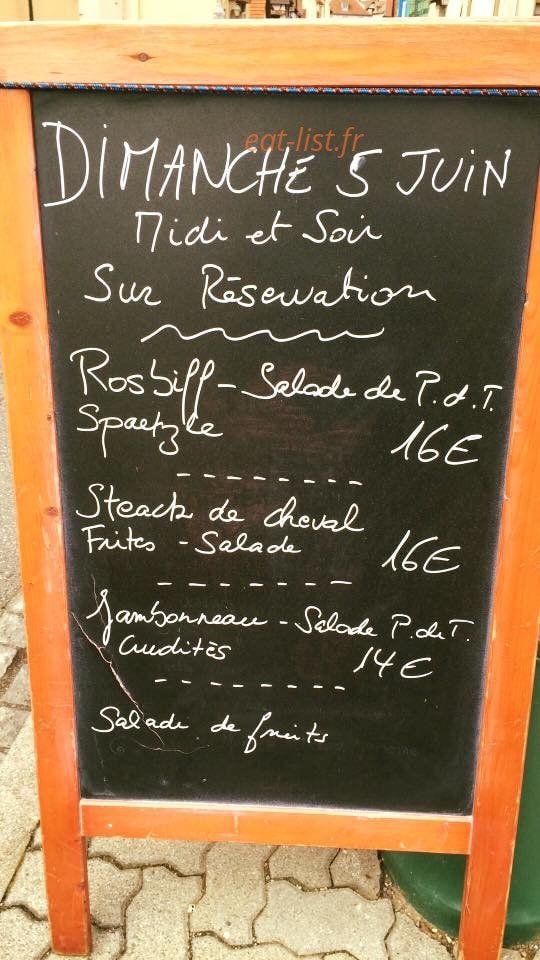 eat-list.fr
DIMANCHE 5 JUIN
Midi et Soir
Sur Réservation
Rosbiff - Salade de P.d.T.
Spaetzle 16€
Steack de cheval
Frites - Salade 16€
Jambonneau - Salade P.d.T.
Crudités 14€
Salade de fruits